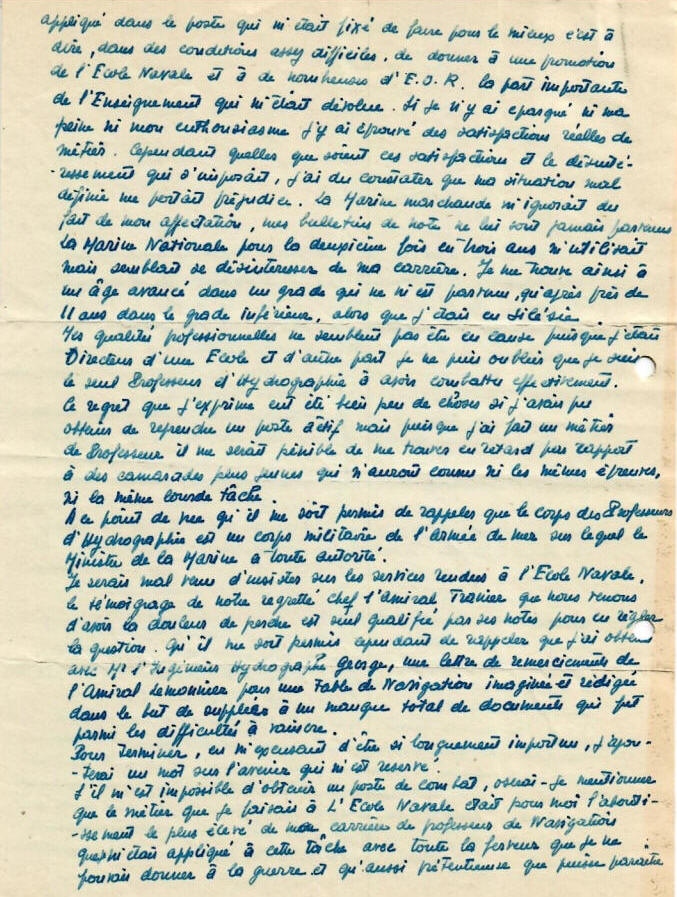 appliqué dans le poste qui m'était fixé de faire pour le mieux c'est à
dire, dans des conditions assez difficiles, de donner à une promotion
de l'Ecole Navale et à de nombreuses d'E.O.R. la part importante
de l'Enseignement qui m'était dévolue. Si je n'y ai épargné ni ma
peine ni mon enthousiasme j'y ai éprouvé des satisfactions réelles de
métier. Cependant quelles que soient ces satisfactions et le désinté-
-ressement qui s'imposait, j'ai du constater que ma situation mal
définie me portait préjudice. La Marine marchande m'ignorait du
fait de mon affectation, mes bulletins de note ne lui sont jamais parvenus
La Marine Nationale pour la deuxième fois en trois ans m'utilisait
mais semblait se désintéresser de ma carrière. Je me trouve ainsi à
un âge avancé dans un grade qui ne m'est parvenu, qu'après près de
11 ans dans le grade inférieur, alors que j'étais en Silésie.
Mes qualités professionnelles ne semblent pas être en cause puisque j'étais
Directeur d'une Ecole et d'autre part je ne puis oublier que je suis
le seul Professeur d'Hydrographie à avoir combattu effectivement.
Le regret que j'exprime eut été bien peu de choses si j'avais pu
obtenir de reprendre un poste actif mais puisque j'ai fait un métier
de Professeur il me serait pénible de me trouver en retard par rapport
à des camarades plus jeunes qui n'auront connu ni les mêmes épreuves,
ni la même lourde tâche.
A ce point de vue qu'il me soit permis de rappeler que le corps des Professeurs
d'Hydrographie est un corps militaire de l'armée de mer sur lequel le
Ministre de la Marine a toute autorité.
Je serais mal venu d'insister sur les services rendus à l'Ecole Navale,
le témoignage de notre regretté chef l'Amiral que nous venons
d'avoir la douleur de perdre est seul qualifié par ses notes pour en régler
la question. Qu'il me soit permis cependant de rappeler que j'ai obtenu
avec Mr l'Ingénieur Hydrographe George, une lettre de remerciements de
l'Amiral Lemonnier pour une Table de Navigation imaginée et rédigée
dans le but de suppléer à un manque total de documents qui fut
parmi les difficultés à vaincre.
Pour terminer, en m'excusant d'être si longuement importun, j'ajou-
-terai un mot sur l'avenir qui m'est réservé.
S'il m'est impossible d'obtenir un poste de combat, oserai-je mentionner
que le métier que je faisais à L'Ecole Navale était pour moi l'abouti-
-ssement le plus élevé de mon carrière de professeur de Navigation
que m'étais appliqué à cette tâche avec toute la ferveur que je ne
pouvais donner à la guerre et qu'aussi prétentieuse que puisse paraître